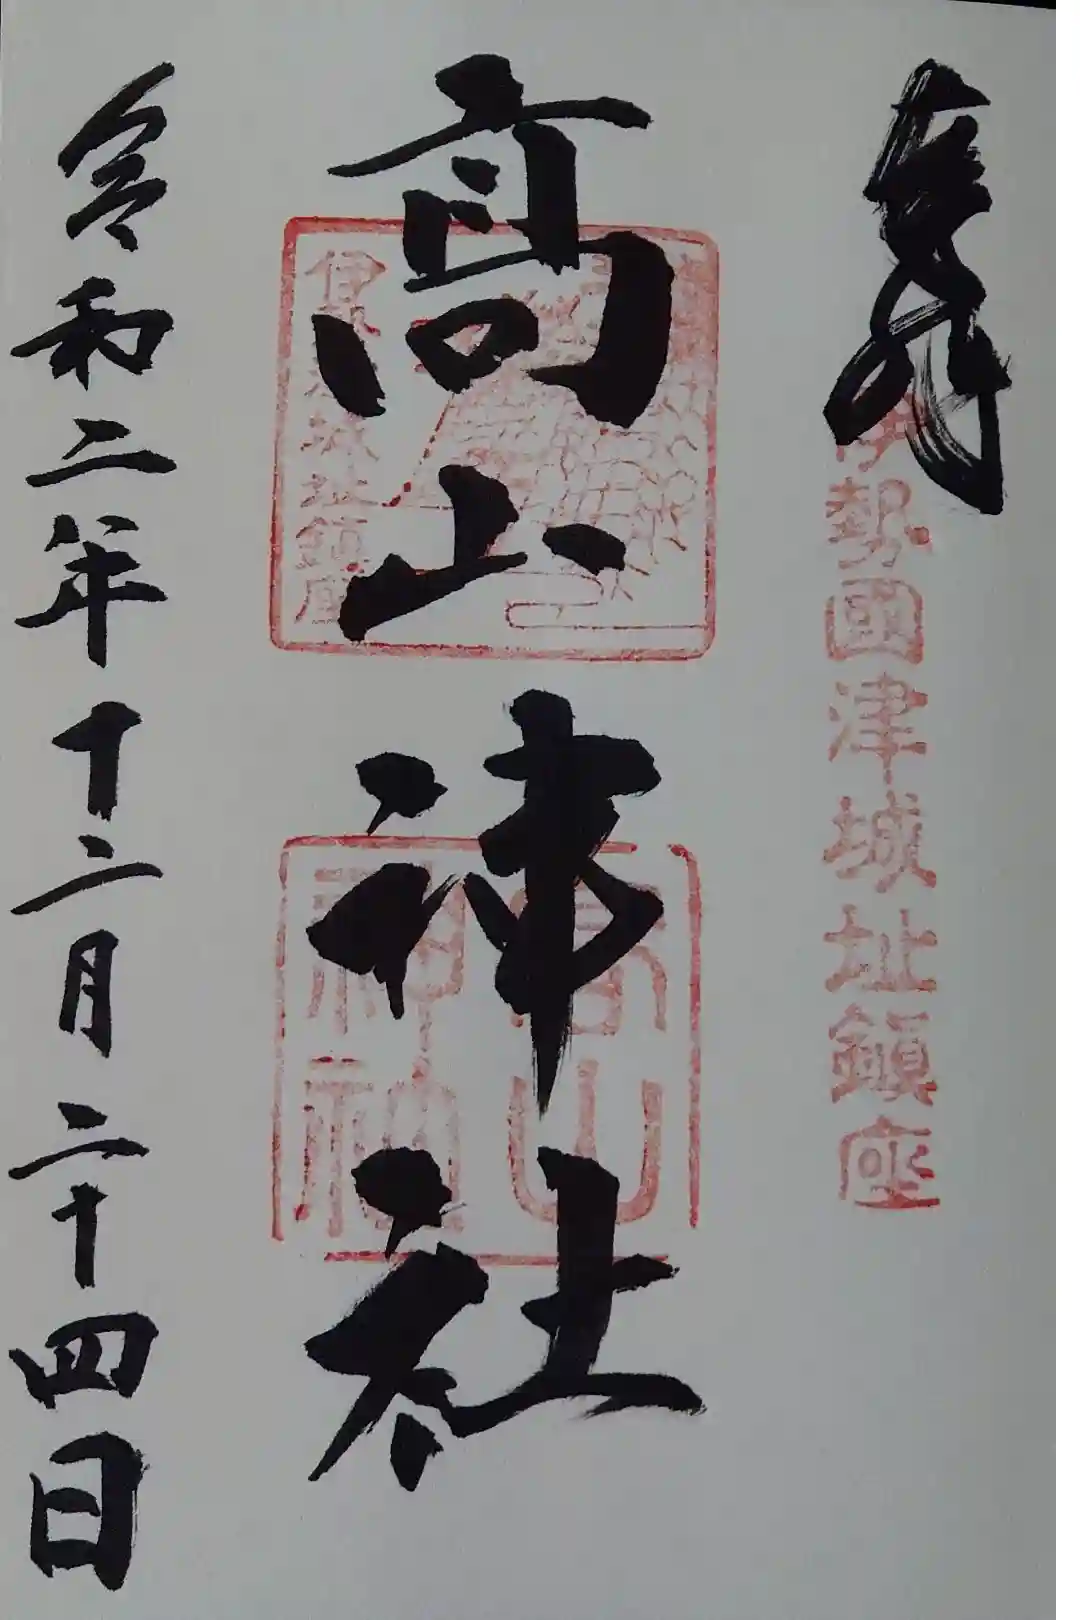 奉拝
伊勢國津城址鎮座
高山神社
伊勢津城址鎮座
高山神社
令和二年十二月二十四日